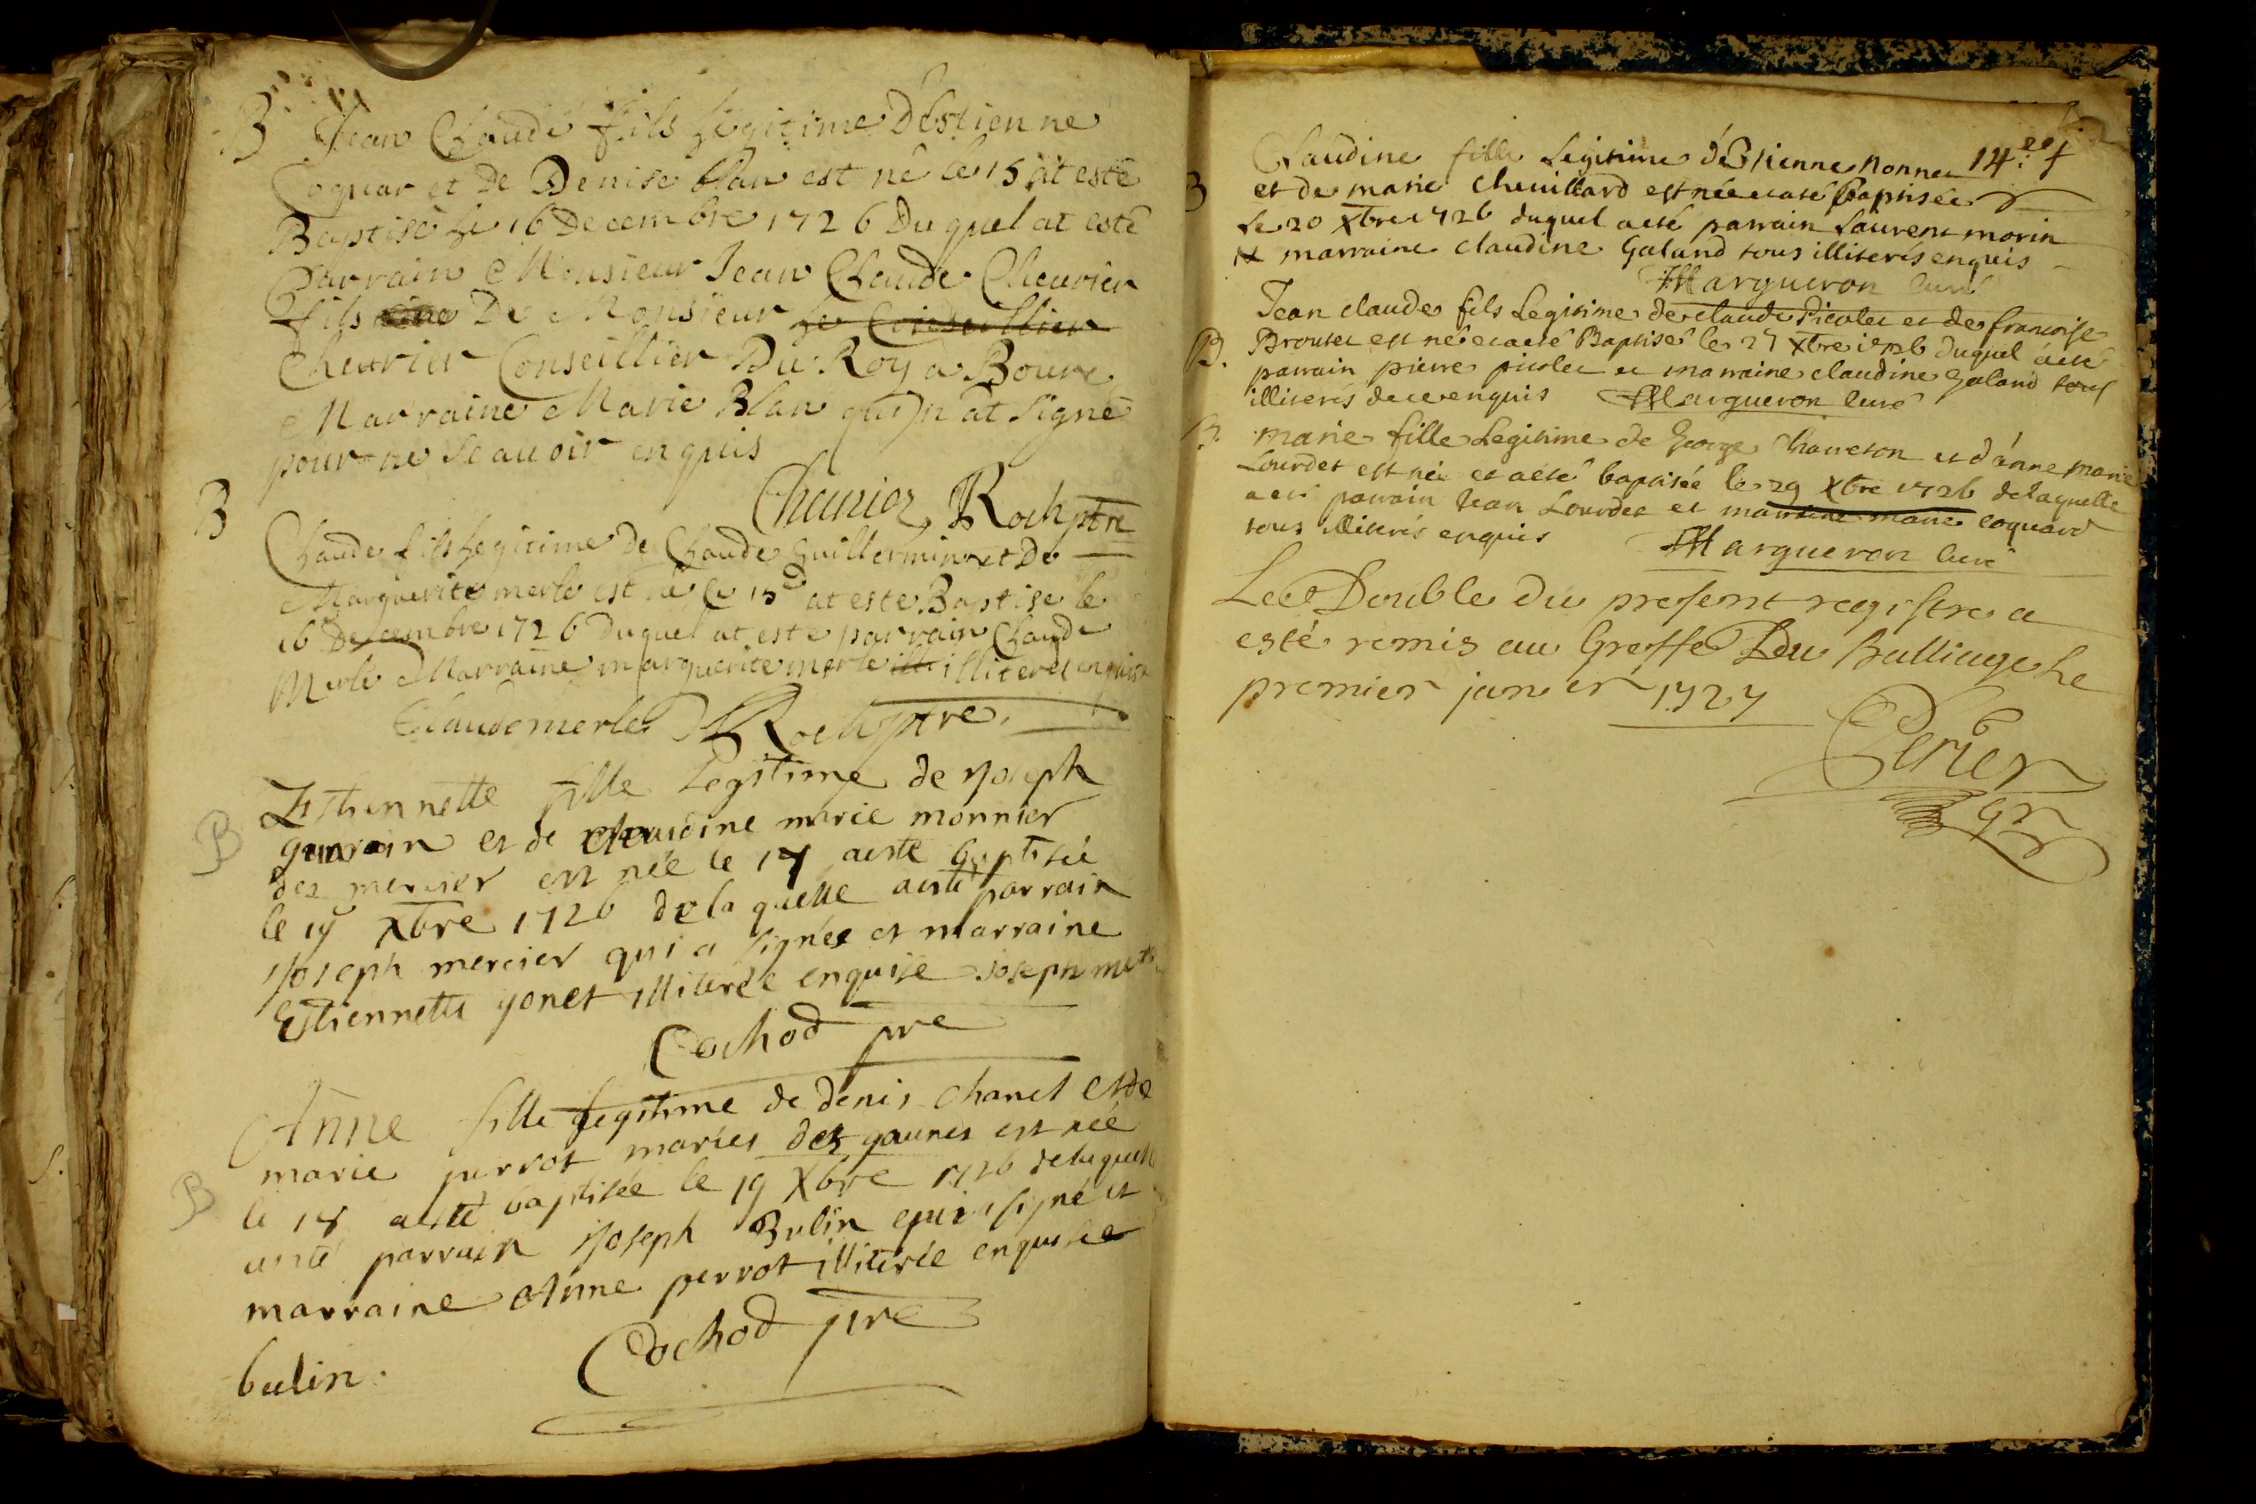 B Jean Claude fils Legitime D'Estienne
Coquar et De Denise blan est né le 15 at esté
Baptisé Le 16 Decembre 1726 Duquel at esté
Parrain Monsieur Jean Claude Cheurier
fils De Monsieur Le Conseillier
Cheurier Conseillier Du Roy a Bourg
Marraine Marie Blan qui n'at Signé
pour ne Scauoir enquis
Cheurier, Roch ptre
B
Claude fils Legitime De Claude Guillermin et De
Marguerite merle est né le 15 at este Baptise le
16 Decembre 1726 Duquel at este parrain Claude
Merle Marraine marguerite merle illiteré enquis
Claude merle Roch ptre
Estiennette fille Legitime de Joseph
B
et de Claudine marie monnier
des mercier est née le 17 aesté baptisée
le 19 Xbre 1726 de la quelle aesté parrain
Joseph mercier qui a signée et marraine
Estiennette yonet illiterée enquise Joseph
Cochod pre
Anne fille Legitime de denis chanel et de
marie perrot mariés des gaunes est née
B
le 18 aesté baptisée le 19 Xbre 1726 de laquelle
aesté parrain Joseph Bulin qui a signé et
marraine Anne perrot illiterée enquise
bulin. Cochod pre
Claudine fille Legitime d'Estienne Monnet 14e f
B et de marie cheuillard est née et aesté Baptisée
le 20 Xbre 1726 duquel aesté parrain Laurent morin
et marraine claudine Galand tous illiterés enquis
Margueron curé
Jean claude fils Legitime de claude Picolet et de francoise
B. Brouset est né et aesté Baptisé le 27 Xbre 1726 duquel aesté
parrain pierre picolet et marraine claudine galand tous
illiterés de ce enquis Margueron curé
B. marie fille Legitime de George Chaueton et d'anne marie
Lourdet est née et aesté baptisée le 29 Xbre 1726 de laquelle
aesté parrain Jean Lourdet et marraine marie coquard
tous illiterés enquis Margueron curé
Le Double du present registre a
esté remis au Greffe Du Balliage Le
premier januier 1727
Perier
gr